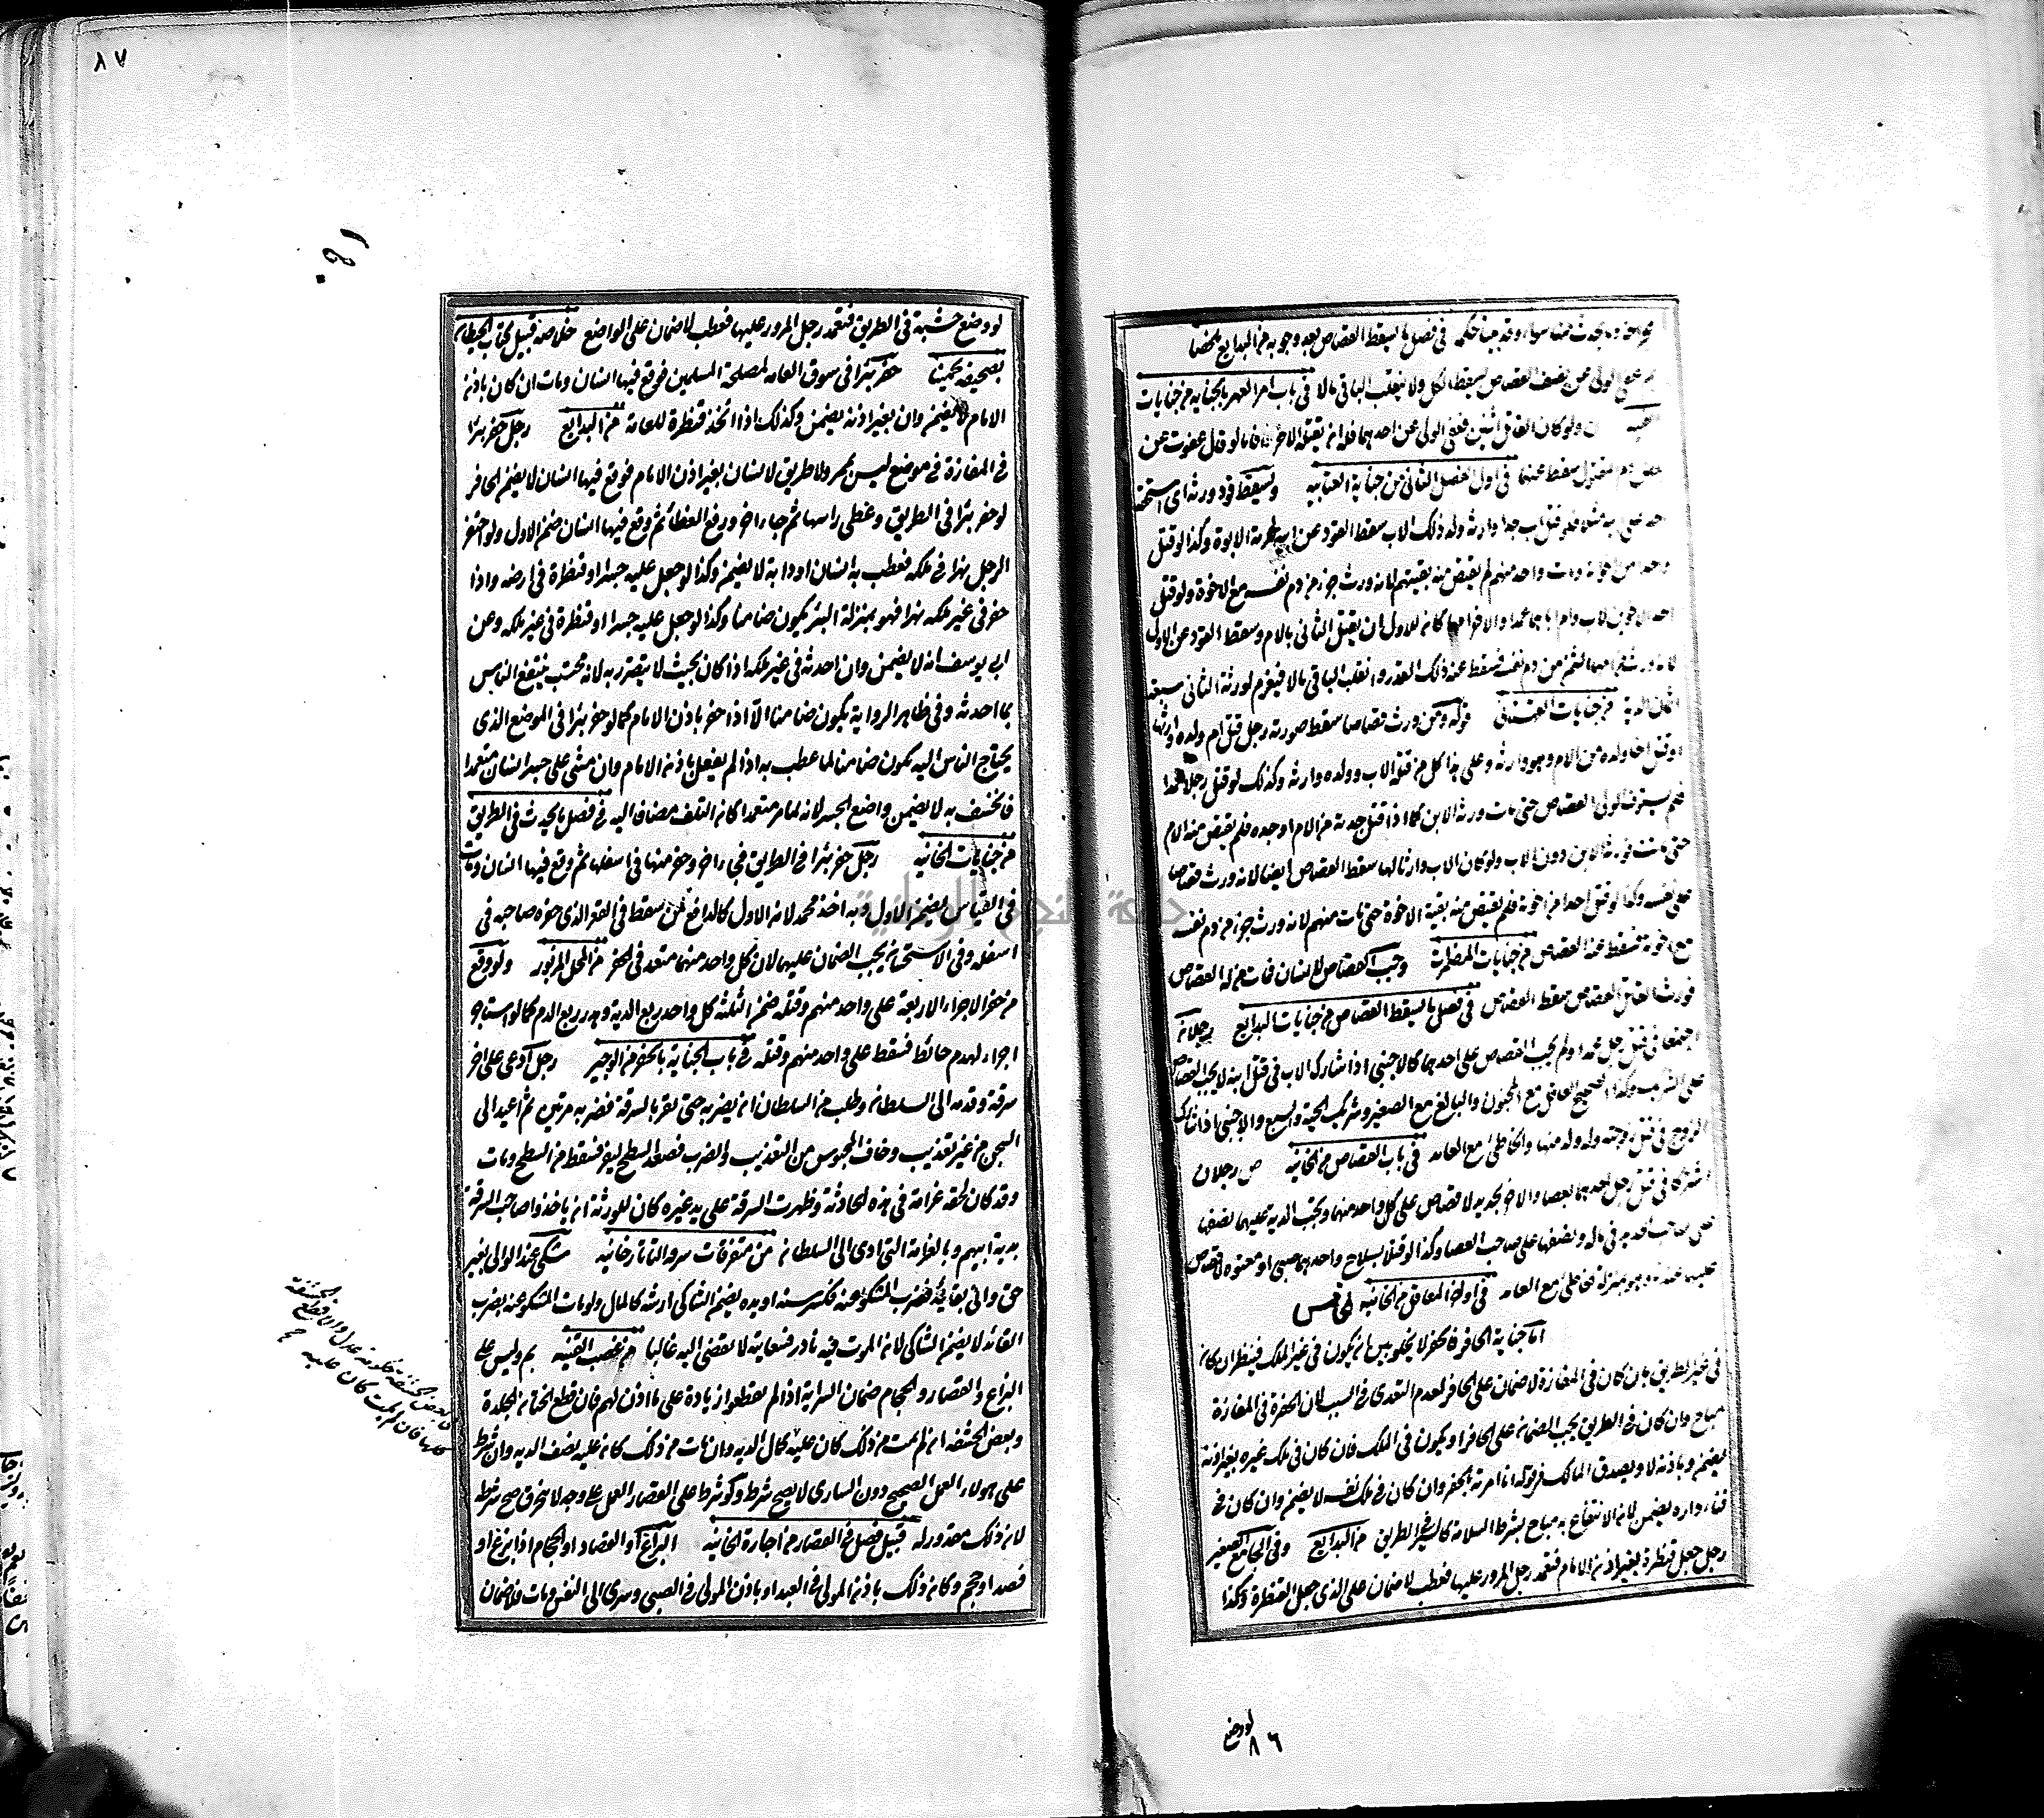 وما يحدث منه سواء وقد بينا حكمه في فصل ما يسقط القصاص بعد وجوبه من البدايع ملخصا
عفى الولي عن نصف القصاص يسقط الكل ولا ينقلب الباقي مالا في باب امر العهر بالجناية من جنايات
ولو كان القاتل اثنين فعفى الولي عن احدهما فله ان يقتل الاخر فاما لو قال عفوت عن
سقط عنهما في اول الفصل الثاني من جناية العتابية ويسقط قود ورثه اى استحقه
على ابيه مثلا فلو قتل اب وارثه ولد ذلك الاب سقط القود عن ابيه لحرمة الابوة وكذا لو قتل
واحد من اخوة ومات واحد منهم لم يقتص منه بقيتهم لانه ورث جزء من دم نفسه مع الاخوة ولو قتل
احد الاخوين لاب وام اباهما عمدا والاخر امهما كان للاول ان يقتل الثاني بالام وسقط القود عن الاول
لانه ورث من امهما الثمن من دم نفسه فسقط عنه ذلك القدر وانقلب الباقي مالا فيغرم لورثة الثاني سبعة
اثمان الدية من جنايات القهستاني قوله ومن ورث قصاصا سقط صورته رجل قتل ام ولده وارثها
او قتل اخا ولده من الام وهو وارثه وعلى هذا كل من قتله الاب وولده وارثه وكذلك لو قتل رجلا عمدا
فلم يستوف الولي القصاص حتى مات ورثه الابن كما اذا قتل جدته من الام او جده فلم يقتص منه الام
حتى ماتت فورثه الابن دون الاب ولو كان الاب وارثا لها سقط القصاص ايضا لانه ورث قصاصا
على نفسه وكذا لو قتل احدا من اخوته فلم يقتص منه بقية الاخوة حتى مات منهم لانه ورث جزء من دم نفسه
مع اخوته فسقط عنه القصاص من جنايات المضمرات وجب القصاص لانسان فمات من له القصاص
فورث القاتل القصاص سقط القصاص في فصل ما يسقط القصاص من جنايات البدايع رجلان
اجتمعا في قتل رجل عمدا ولم يجب القصاص على احدهما كالاجنبي اذا شارك الاب في قتل ابنه لا يجب القصاص
على الشريك وكذا الصحيح العاقل مع المجنون والبالغ مع الصغير وشريك الحية والسبع والاجنبي اذا شارك
الزوج في قتل زوجته وله ولد منها والخاطئ مع العامد في باب القصاص من الخانية ص رجلان
اشتركا في قتل رجل احدهما بعصا والاخر بحديد لا قصاص على كل واحد منهما وتجب الدية عليهما نصفها
على صاحب الحديد في ماله ونصفها على صاحب العصا وكذا لو قتلا بسلاح واحدهما صبي او معتوه لا قصاص
عليهما عندنا وهو بمنزلة الخاطئ مع العامد في اوائل المعاقل من الخانية الخامس
اما جناية الحافر فالحفر لا يخلو من ان يكون في غير الملك فينظر ان كان
في غير الطريق بان كان في المفازة لا ضمان على الحافر لعدم التعدي في السبب لان الحفر في المفازة
مباح وان كان في الطريق يجب الضمان على الحافر او يكون في الملك فان كان في ملك غيره بغير اذنه
يضمن وباذنه لا ويصدق المالك في قوله انا امرته بالحفر وان كان في ملك نفسه لا يضمن وان كان في
فناء داره يضمن لان الانتفاع به مباح بشرط السلامة كالسير في الطريق من البدايع وفي الجامع الصغير
رجل جعل قنطرة بغير اذن الامام فتعمد رجل المرور عليها فعطب لا ضمان على الذي جعل القنطرة وكذا
لو وضع
٨٦
٨٧
لو وضع خشبة في الطريق فتعمد رجل المرور عليها فعطب لا ضمان على الواضع خلاصه قبيل كتاب الحيطان
بصحيفة تخمينا حفر بئرا في سوق العامه لمصلحة المسلمين فوقع فيها انسان ومات ان كان باذن
الامام لا يضمن وان بغير اذنه يضمن وكذلك اذا اتخذ قنطرة للعامة من البدايع رجل حفر بئرا
في المفازة في موضع ليس بممر ولا طريق لانسان بغير اذن الامام فوقع فيها انسان لا يضمن الحافر
لو حفر بئرا في الطريق وغطى راسها ثم جاء اخر ورفع الغطاء ثم وقع فيها انسان ضمن الاول ولو احتفر
الرجل نهرا في ملكه فعطب به انسان او دابة لا يضمن وكذا لو جعل عليه جسرا او قنطرة في ارضه واذا
حفر في غير ملكه نهرا فهو بمنزلة البئر يكون ضامنا وكذا لو جعل عليه جسرا او قنطرة في غير ملكه وعن
ابي يوسف انه لا يضمن وان احدثه في غير ملكه اذا كان بحيث لا يتضرر به لانه محتسب ينتفع الناس
بما احدثه وفي ظاهر الرواية يكون ضامنا الا اذا حفر باذن الامام كما لو حفر بئرا في الموضع الذي
يحتاج الناس اليه يكون ضامنا لما عطب به اذا لم يفعل باذن الامام وان مشى على جسر انسان متعمدا
فانخسف به لا يضمن واضع الجسر لانه لما مر متعمدا كان التلف مضافا اليه في فصل ما يحدث في الطريق
من جنايات الخانية رجل حفر بئرا في الطريق فجاء اخر وحفر منها في اسفلها ثم وقع فيها انسان ومات
في القياس يضمن الاول وبه اخذ محمد لانه الاول كالدافع لمن سقط في القعر الذي حفره صاحبه في
اسفله وفي الاستحسان يجب الضمان عليهما لان كل واحد منهما متعد في الحفر من المحل المزبور ولو وقع
من حفر الاجراء الاربعة على واحد منهم وقتله ضمن الثلثة كل واحد ربع الدية وهدر ربع الدم كما لو استاجر
اجراء لهدم حائط فسقط على واحد منهم وقتله في باب الجناية بالحفر من الوجيز رجل ادعى على اخر
سرقة وقدمه الى السلطان وطلب من السلطان ان يضربه حتى يقر بالسرقة فضربه مرتين ثم اعيد الى
السجن من غير تعذيب وخاف المحبوس من التعذيب والضرب فصعد السطح ليفر فسقط من السطح ومات
وقد كان لحقه غرامة في هذه الحادثة وظهرت السرقة على يد غيره كان للورثة ان ياخذوا صاحب السرقة
بدية ابيهم وبالغرامة التي ادى الى السلطان من متفرقات سرقه التاتارخانيه شكى عند الوالي بغير
حق واتى بقائد فضرب المشكو عنه فكسر سنه او يده يضمن الشاكي ارشه كالمال ولو مات المشكو عنه بضرب
القائد لا يضمن الشاكي لان الموت فيه نادر فسعايته لا تفضى اليه غالبا من غصب القنية بم وليس على
البزاغ والفصاد والحجام ضمان السراية اذا لم يقطعوا زيادة على ما اذن لهم فان قطع الختان الجلدة
وبعض الحشفه ان لم يمت من ذلك كان عليه كمال الديه وان مات من ذلك كان عليه نصف الديه وان شرط
على هولاء العمل الصحيح دون الساري لا يصح شرطه ولو شرط على القصار العمل على وجه لا ينخرق صح شرطه
لان ذلك مقدور له قبيل فصل في القصار من اجارة الخانية البزاغ او الفصاد او الحجام اذا بزغ او
فصد او حجم وكان ذلك باذن المولى في العبد او باذن الولي في الصبي وسرى الى النفس ومات فلا ضمان